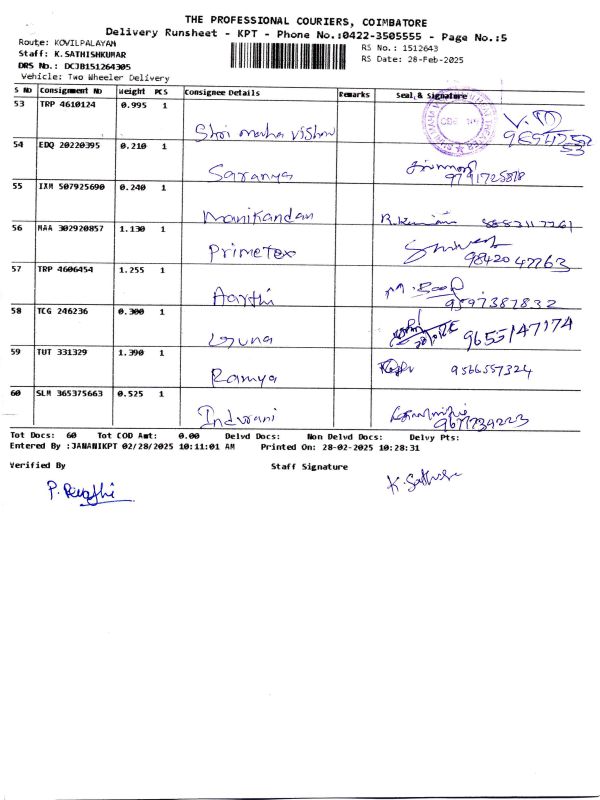 THE PROFESSIONAL COURIERS, COIMBATORE
Delivery Runsheet - KPT - Phone No.:0422-3505555 - Page No.:5
Route: KOVILPALAYAM
Staff: K.SATHISHKUMAR
DRS No.: DCJB151264305
Vehicle: Two Wheeler Delivery
RS No.: 1512643
RS Date: 28-Feb-2025
S No Consignment No Weight PCS Consignee Details Remarks Seal & Signature
53 TRP 4610124 0.995 1 Shri maha vishnu
54 EDQ 20220395 0.210 1 Saranya 9791725878
55 IXM 507925690 0.240 1 Manikandan
56 MAA 302920857 1.130 1 Primetex 9842047763
57 TRP 4606454 1.255 1 Aarthi 9597387832
58 TCG 246236 0.300 1 Guna 9655147174
59 TUT 331329 1.390 1 Ramya 9566557324
60 SLM 365375663 0.525 1 Indurani
Tot Docs: 60 Tot COD Amt: 0.00 Delvd Docs: Non Delvd Docs: Delvy Pts:
Entered By :JANANIKPT 02/28/2025 10:11:01 AM Printed On: 28-02-2025 10:28:31
Verified By Staff Signature